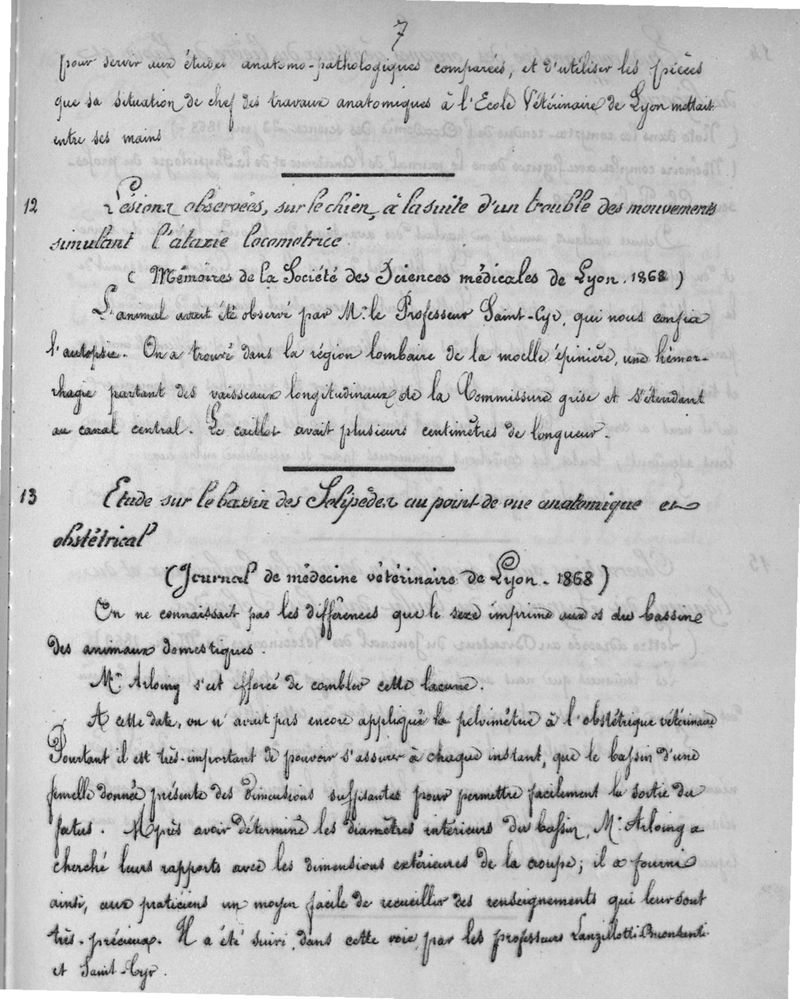 7
pour servir aux études anatomo-pathologiques comparées, et d'utiliser les pièces
que sa situation de chef des travaux anatomiques à l'Ecole Vétérinaire de Lyon mettait
entre ses mains
12 Lésions observées, sur le chien, à la suite d'un trouble des mouvements
simulant l'ataxie locomotrice.
(Mémoires de la Société des Sciences médicales de Lyon. 1868)
L'animal avait été observé par Mr le Professeur Saint-Cyr, qui nous confia
l'autopsie. On a trouvé dans la région lombaire de la moelle épinière, une hémor-
rhagie partant des vaisseaux longitudinaux de la Commissure grise et s'étendant
au canal central. Le caillot avait plusieurs centimètres de longueur.
13 Etude sur le bassin des Solipèdes au point de vue anatomique et
obstétrical
(Journal de médecine vétérinaire de Lyon. 1868)
On ne connaissait pas les différences que le sexe imprime aux os du bassin
des animaux domestiques.
Mr Arloing s'est efforcé de combler cette lacune.
A cette date, on n'avait pas encore appliqué la pelvimétrie à l'obstétrique vétérinaire
Pourtant il est très-important de pouvoir s'assurer à chaque instant, que le bassin d'une
femelle donnée présente des dimensions suffisantes pour permettre facilement la sortie du
fœtus. Après avoir déterminé les diamètres intérieurs du bassin, Mr Arloing a
cherché leurs rapports avec les dimensions extérieures de la croupe; il a fourni
ainsi, aux praticiens un moyen facile de recueillir des renseignements qui leur sont
très-précieux. Il a été suivi, dans cette voie, par les professeurs Lanzillotti-Buonsanti
et Saint-Cyr.